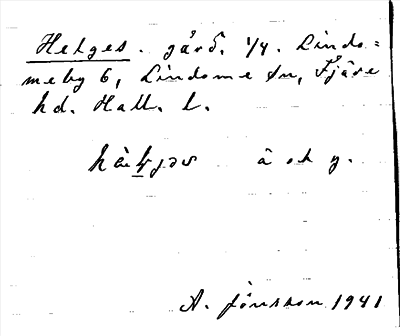 Helges. gård. 1/4. Lindo=
meby 6, Lindome sn, Fjäre
hd. Hall. l.
A. Jönsson 1941